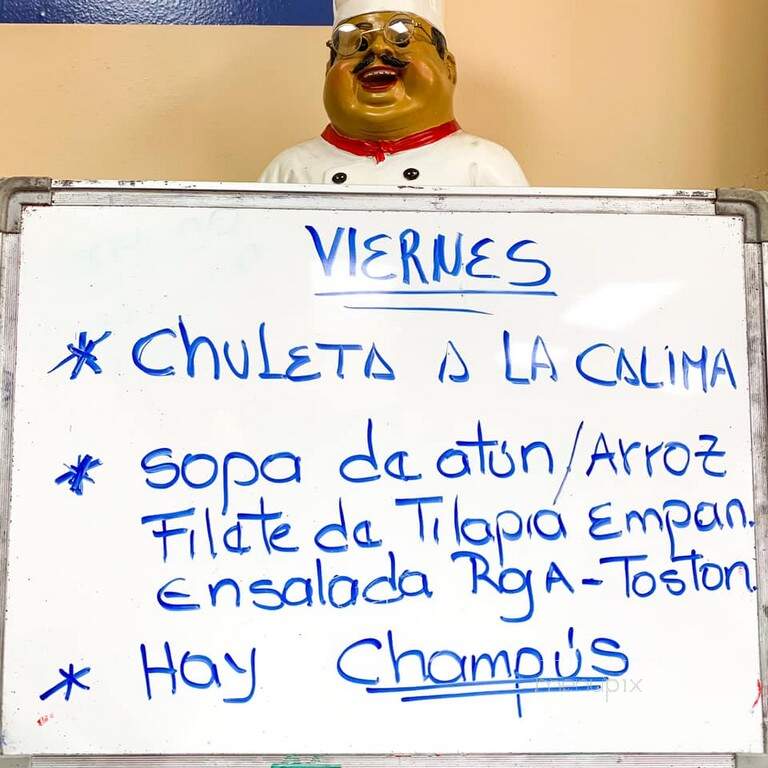 VIERNES
* CHULETA A LA CALIMA
* sopa de atún/Arroz
Filete de Tilapia Empan.
Ensalada RgA-Toston.
* Hay Champús
menupix